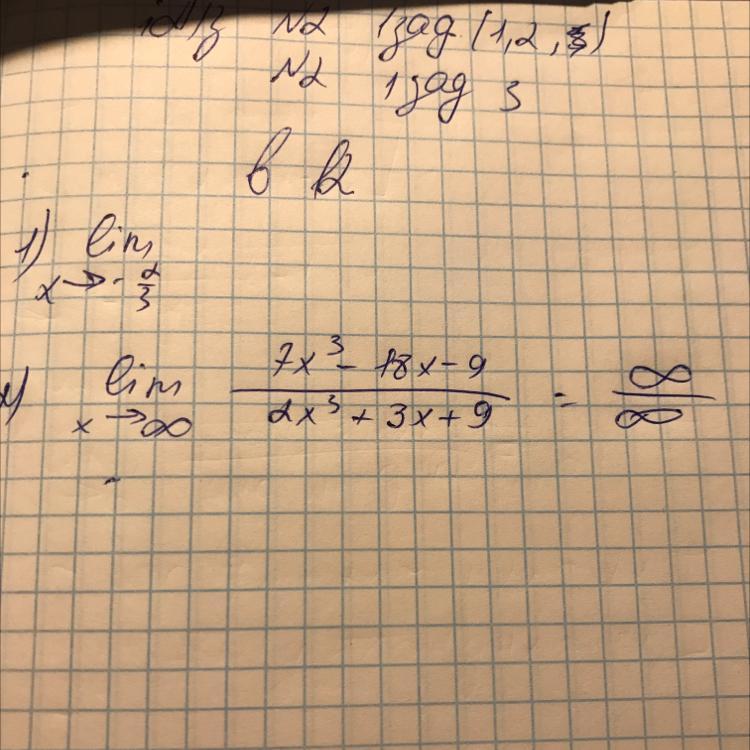 №2 1 зад (1,2,3)
№2 1 зад 3
в к2
1) lim x→-2/3
2) lim x→∞ (7x³ - 18x - 9)/(2x³ + 3x + 9) = ∞/∞
-